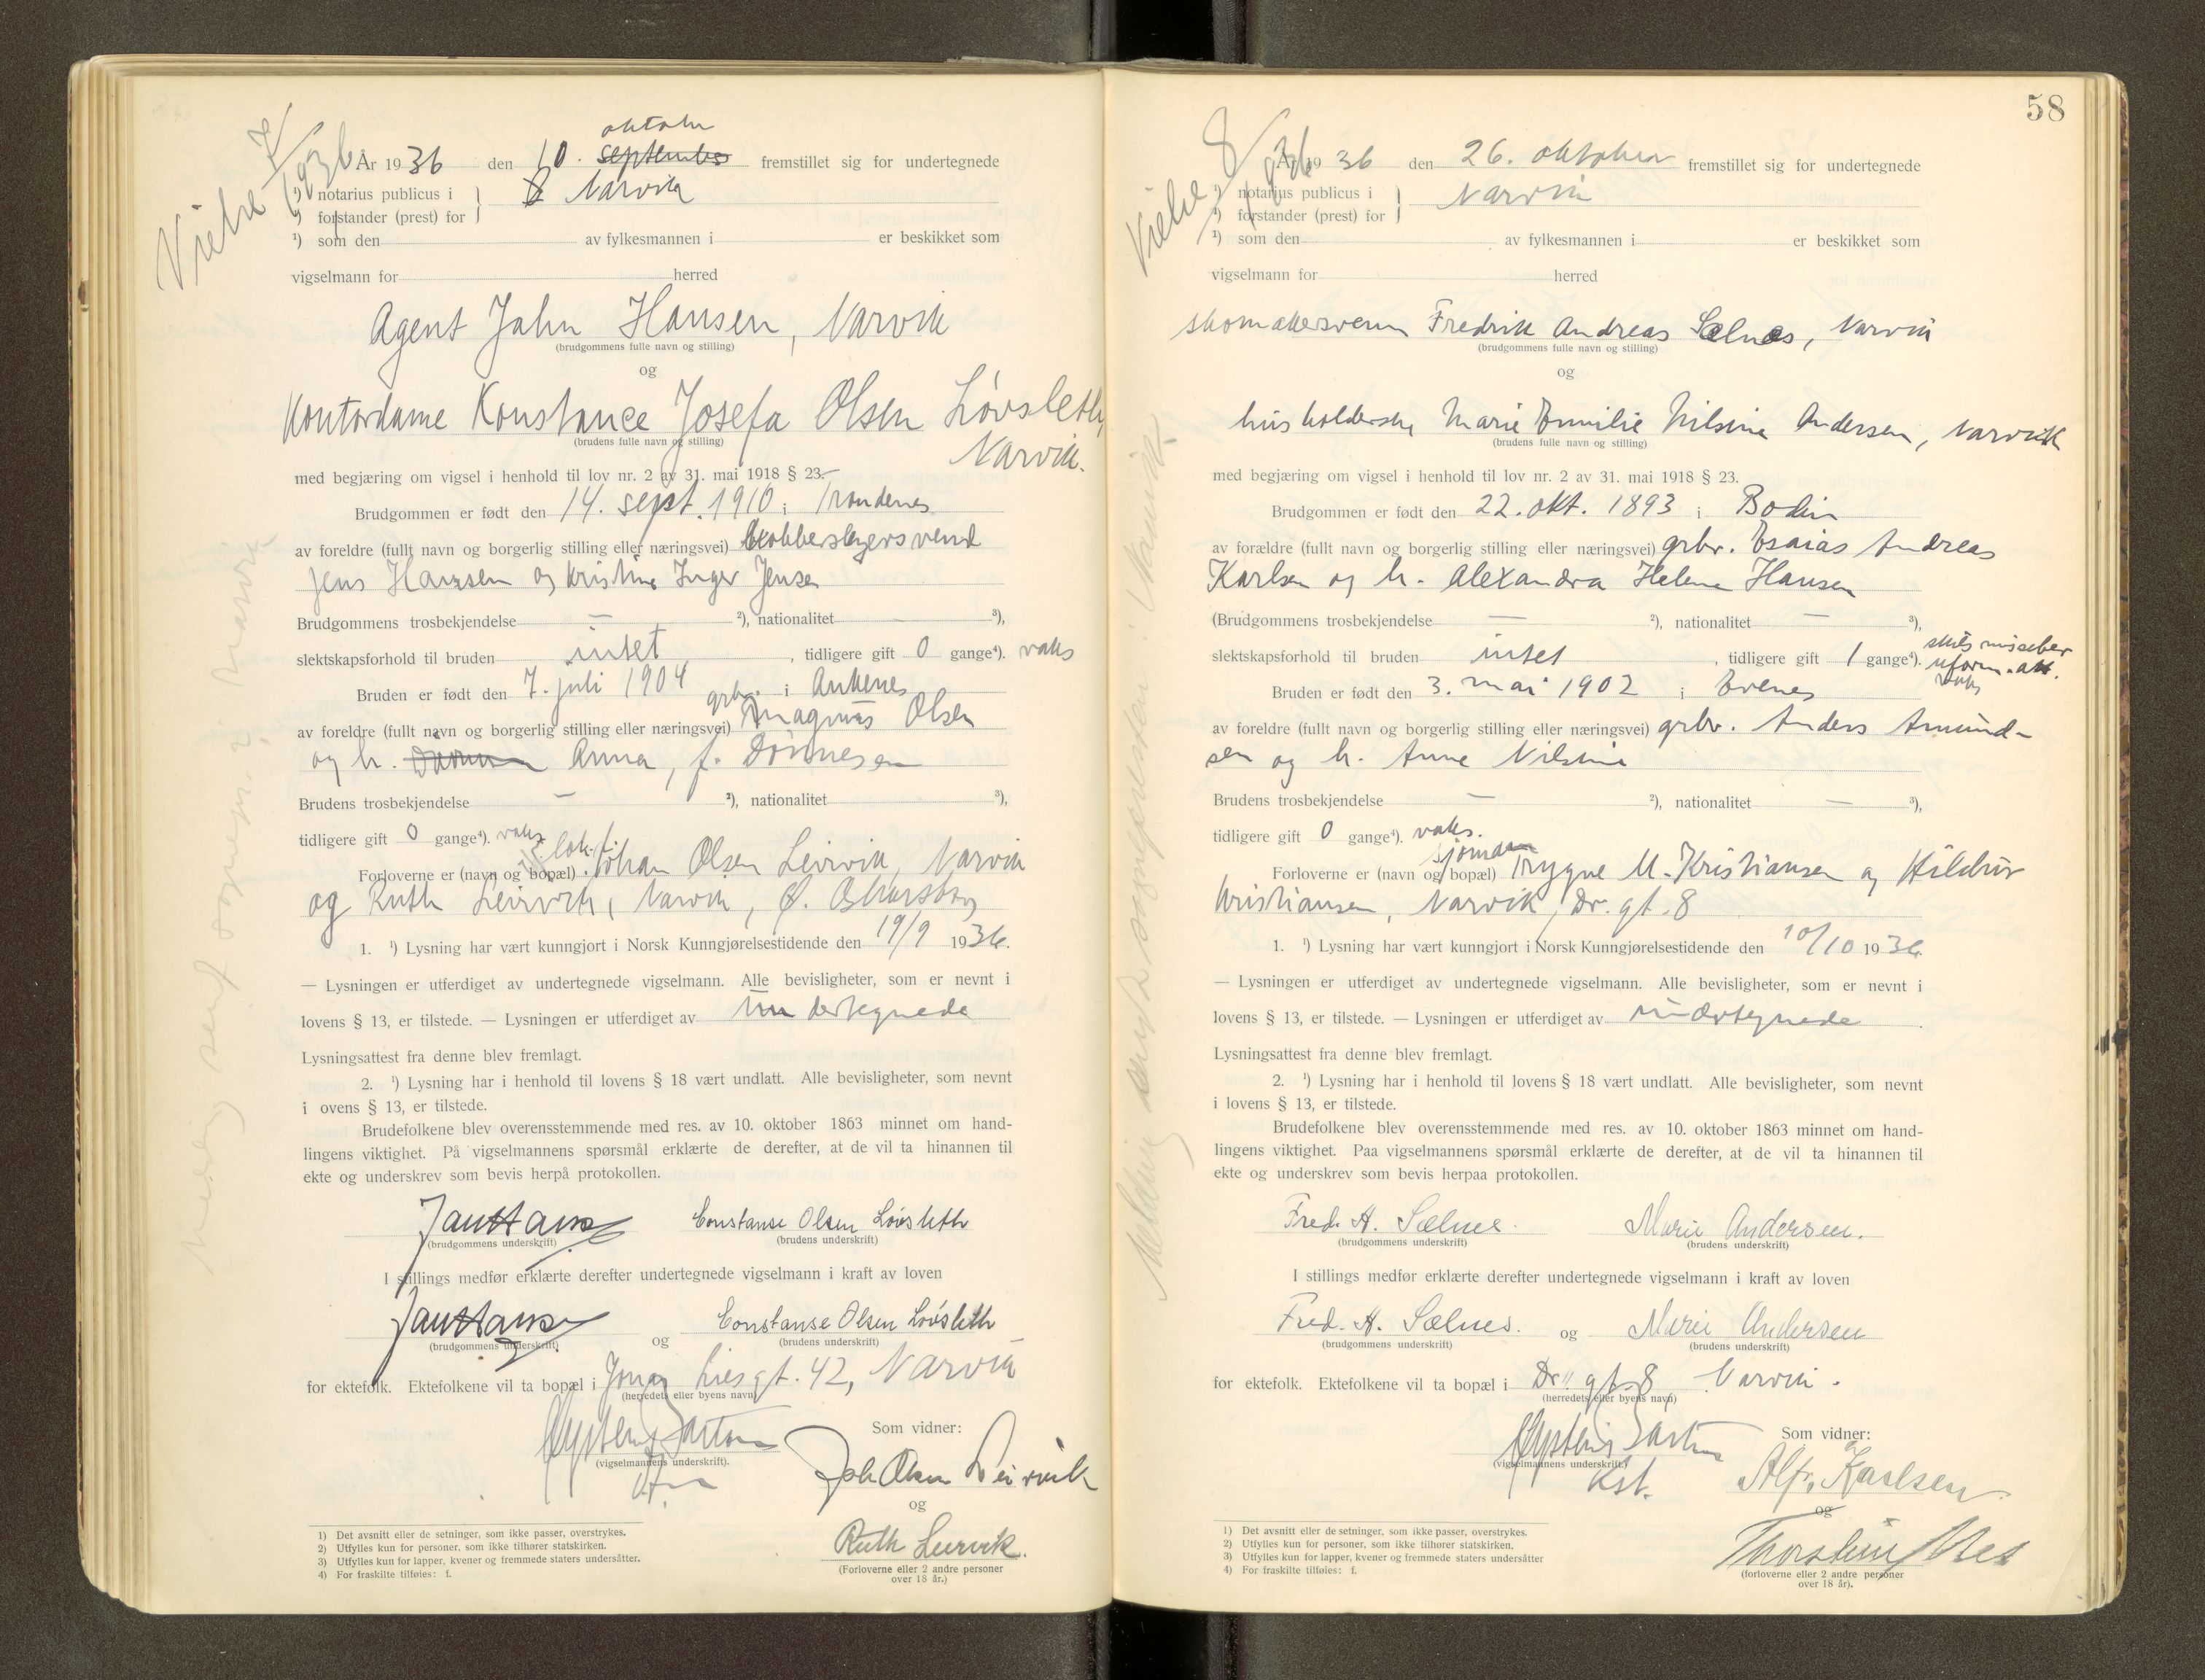 Vielse 7/1936
oktober
År 1936 den 10. september fremstillet sig for undertegnede
¹) notarius publicus i } Narvik
¹) forstander (prest) for
¹) som den av fylkesmannen i er beskikket som
vigselmann for herred
Agent Jahn Hansen, Narvik
(brudgommens fulle navn og stilling)
og
Kontordame Konstance Josefa Olsen Løvsleth,
(brudens fulle navn og stilling)
Narvik.
med begjæring om vigsel i henhold til lov nr. 2 av 31. mai 1918 § 23.
Brudgommen er født den 14. sept. 1910 i Trondenes
av foreldre (fullt navn og borgerlig stilling eller næringsvei) kobberslagersvend
Jens Hansen og Kristine Inger Jensen
Brudgommens trosbekjendelse — ²), nationalitet ³),
slektskapsforhold til bruden intet, tidligere gift 0 gange⁴). vaks
Bruden er født den 7. juli 1904 i Ankenes
av foreldre (fullt navn og borgerlig stilling eller næringsvei) grbr. Magnus Olsen
og h. Anna, f. Dønnesen
Brudens trosbekjendelse — ²), nationalitet ³),
tidligere gift 0 gange⁴). vaks
Forloverne er (navn og bopæl) Johan Olsen Leirvik, Narvik
og Ruth Leirvik, Narvik, Ø.
1. ¹) Lysning har vært kunngjort i Norsk Kunngjørelsestidende den 19/9 1936.
— Lysningen er utferdiget av undertegnede vigselmann. Alle bevisligheter, som er nevnt i
lovens § 13, er tilstede. — Lysningen er utferdiget av undertegnede
Lysningsattest fra denne blev fremlagt.
2. ¹) Lysning har i henhold til lovens § 18 vært undlatt. Alle bevisligheter, som nevnt
i ovens § 13, er tilstede.
Brudefolkene blev overensstemmende med res. av 10. oktober 1863 minnet om hand-
lingens viktighet. På vigselmannens spørsmål erklærte de derefter, at de vil ta hinannen til
ekte og underskrev som bevis herpå protokollen.
Jan Hansen Constanse Olsen Løvsleth
(brudgommens underskrift) (brudens underskrift)
I stillings medfør erklærte derefter undertegnede vigselmann i kraft av loven
Jan Hansen og Constanse Olsen Løvsleth
(brudgommens underskrift) (brudens underskrift)
for ektefolk. Ektefolkene vil ta bopæl i Jonas Lies gt. 42, Narvik
(herredets eller byens navn)
Som vidner:
(vigselmannens underskrift).
Joh Olsen Leirvik
og
Ruth Leirvik.
(Forloverne eller 2 andre personer
over 18 år.)
1) Det avsnitt eller de setninger, som ikke passer, overstrykes.
2) Utfylles kun for personer, som ikke tilhører statskirken.
3) Utfylles kun for lapper, kvener og fremmede staters undersåtter.
4) For fraskilte tilføies: f.
58
Vielse 8/1936
År 1936 den 26. oktober fremstillet sig for undertegnede
¹) notarius publicus i } Narvik
¹) forstander (prest) for
¹) som den av fylkesmannen i er beskikket som
vigselmann for herred
skomakersvenn Fredrik Andreas Sælnes, Narvik
(brudgommens fulle navn og stilling)
og
husholderske Marie Emilie Nilsine Andersen, Narvik
(brudens fulle navn og stilling)
med begjæring om vigsel i henhold til lov nr. 2 av 31. mai 1918 § 23.
Brudgommen er født den 22. okt. 1893 i Bodin
av forældre (fullt navn og borgerlig stilling eller næringsvei) grbr. Esaias Andreas
Karlsen og h. Alexandra Helene Hansen
(Brudgommens trosbekjendelse — ²), nationalitet — ³),
slektskapsforhold til bruden intet, tidligere gift 1 gange⁴).
vaks
Bruden er født den 3. mai 1902 i Evenes
av foreldre (fullt navn og borgerlig stilling eller næringsvei) grbr. Anders Amund-
sen og h. Anne Nilsine
Brudens trosbekjendelse — ²), nationalitet — ³),
tidligere gift 0 gange⁴). vaks.
Forloverne er (navn og bopæl) sjømann Trygve M. Kristiansen og Hildur
Kristiansen, Narvik, Dr. gt. 8
1. ¹) Lysning har vært kunngjort i Norsk Kunngjørelsestidende den 10/10 1936.
— Lysningen er utferdiget av undertegnede vigselmann. Alle bevisligheter, som er nevnt i
lovens § 13, er tilstede. — Lysningen er utferdiget av undertegnede
Lysningsattest fra denne blev fremlagt.
2. ¹) Lysning har i henhold til lovens § 18 vært undlatt. Alle bevisligheter, som nevnt
i lovens § 13, er tilstede.
Brudefolkene blev overensstemmende med res. av 10. oktober 1863 minnet om hand-
lingens viktighet. Paa vigselmannens spørsmål erklærte de derefter, at de vil ta hinannen til
ekte og underskrev som bevis herpaa protokollen.
Fred. A. Sælnes. Marie Andersen.
(brudgommens underskrift) (brudens underskrift)
I stillings medfør erklærte derefter undertegnede vigselmann i kraft av loven
Fred. A. Sælnes. og Marie Andersen
(brudgommens underskrift) (brudens underskrift)
for ektefolk. Ektefolkene vil ta bopæl i Dr. gt. 8 Narvik.
(herredets eller byens navn)
Som vidner:
(vigselmannens underskrift.)
Kst.
Alfr. Karlsen
og
Thorstein
(forloverne eller 2 andre personer
over 18 år).
1) Det avsnitt eller de setninger, som ikke passer, overstrykes.
2) Utfylles kun for personer, som ikke tilhører statskirken.
3) Utfylles kun for lapper, kvener og fremmede staters undersåtter
4) For fraskilte tilføies: f.
Melding sendt sognepresten i Narvik